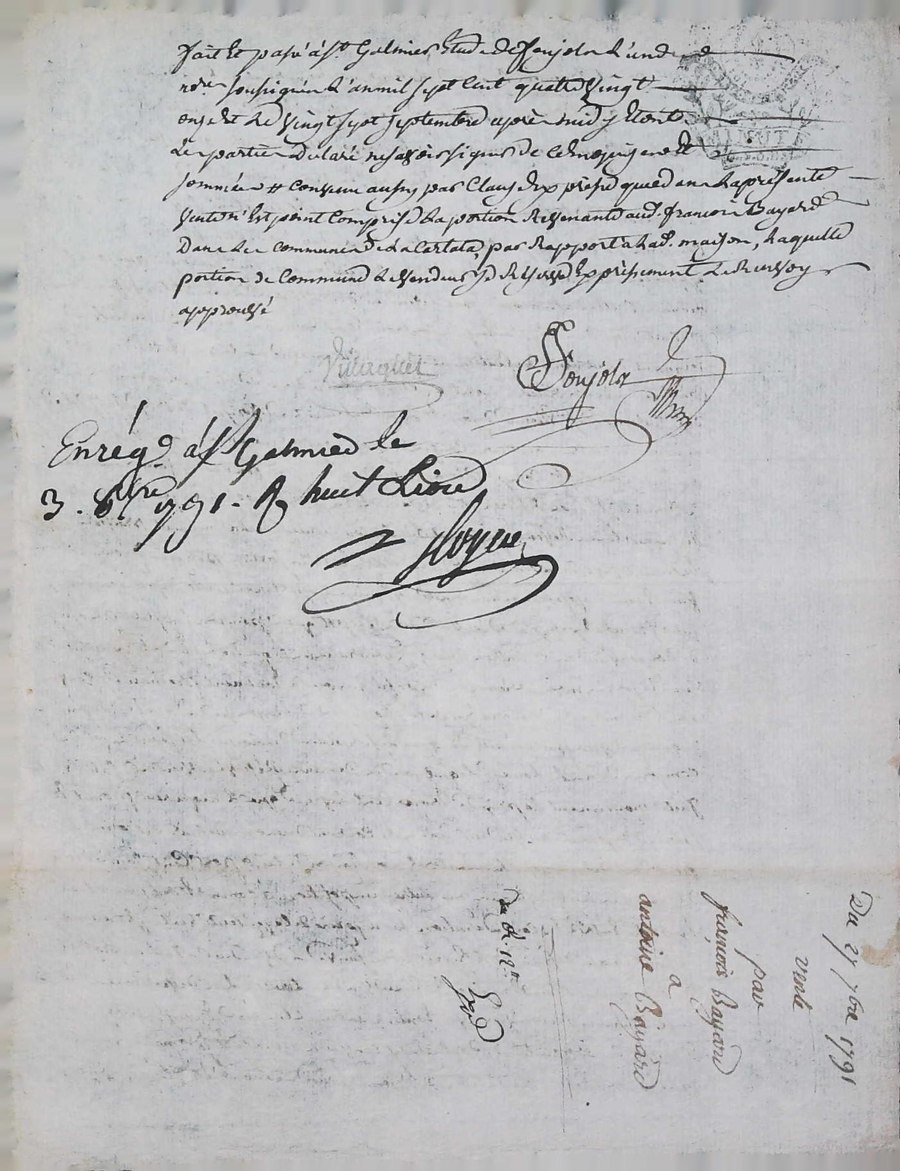 fait et passé à St Galmier Etude de Soujolx l'un des
nores soussignés l'an mil sept cent quatre vingt
onze et le vingt sept septembre après midy Etant
les parties déclaré ne savoir signer de ce enquises et
sommées # convenu aussy par clause expresse que dans la présente
vente n'est point comprise la portion revenante aud. françois Bayard
dans les communes de la par rapport a lad. maison, laquelle
portion de commune le vendeur se réserve expressément le renvoy
approuvé
Soujolx
Enrég. à St Galmier le
3. 8bre 1791. R huit Livres
Du 27 7bre 1791
vente
par
françois Bayard
a
antoine Bayard